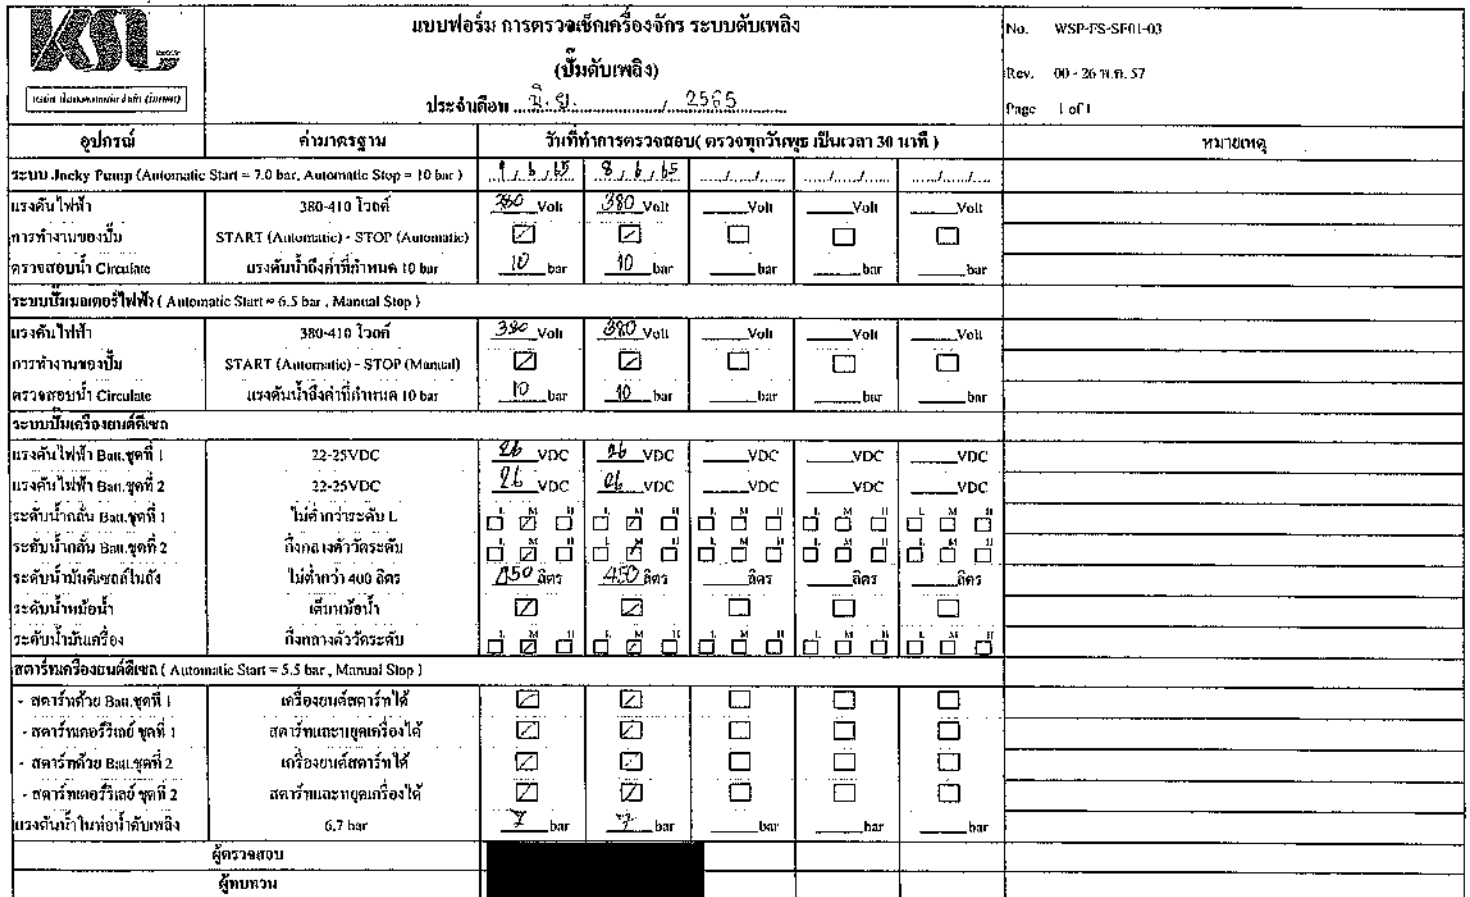 KSL
แบบฟอร์ม การตรวจเช็กเครื่องจักร ระบบดับเพลิง
(ปั๊มดับเพลิง)
ประจำเดือน มิ.ย. / 2565
No. WSP-FS-SF01-03
Rev. 00 - 26 พ.ค. 57
Page 1 of 1
อุปกรณ์ ค่ามาตรฐาน วันที่ทำการตรวจสอบ( ตรวจทุกวันพุธ เป็นเวลา 30 นาที ) หมายเหตุ
ระบบ Jocky Pump (Automatic Start = 7.0 bar, Automatic Stop = 10 bar ) 1 / 6 / 65 8 / 6 / 65 .../.../... .../.../... .../.../...
แรงดันไฟฟ้า 380-410 โวลต์ 380 Volt 380 Volt Volt Volt Volt
การทำงานของปั๊ม START (Automatic) - STOP (Automatic) ☑ ☑ ☐ ☐ ☐
ตรวจสอบน้ำ Circulate แรงดันน้ำถึงค่าที่กำหนด 10 bar 10 bar 10 bar bar bar bar
ระบบปั๊มมอเตอร์ไฟฟ้า ( Automatic Start = 6.5 bar , Manual Stop )
แรงดันไฟฟ้า 380-410 โวลต์ 380 Volt 380 Volt Volt Volt Volt
การทำงานของปั๊ม START (Automatic) - STOP (Manual) ☑ ☑ ☐ ☐ ☐
ตรวจสอบน้ำ Circulate แรงดันน้ำถึงค่าที่กำหนด 10 bar 10 bar 10 bar bar bar bar
ระบบปั๊มเครื่องยนต์ดีเซล
แรงดันไฟฟ้า Batt.ชุดที่ 1 22-25VDC 26 VDC 26 VDC VDC VDC VDC
แรงดันไฟฟ้า Batt.ชุดที่ 2 22-25VDC 26 VDC 26 VDC VDC VDC VDC
ระดับน้ำกลั่น Batt.ชุดที่ 1 ไม่ต่ำกว่าระดับ L L M H L M H L M H L M H L M H
ระดับน้ำกลั่น Batt.ชุดที่ 2 กึ่งกลางตัววัดระดับ L M H L M H L M H L M H L M H
ระดับน้ำมันดีเซลในถัง ไม่ต่ำกว่า 400 ลิตร 450 ลิตร 450 ลิตร ลิตร ลิตร ลิตร
ระดับน้ำหม้อน้ำ เต็มหม้อน้ำ ☑ ☑ ☐ ☐ ☐
ระดับน้ำมันเครื่อง กึ่งกลางตัววัดระดับ L M H L M H L M H L M H L M H
สตาร์ทเครื่องยนต์ดีเซล ( Automatic Start = 5.5 bar , Manual Stop )
- สตาร์ทด้วย Batt.ชุดที่ 1 เครื่องยนต์สตาร์ทได้ ☑ ☑ ☐ ☐ ☐
- สตาร์ทเตอร์รีเลย์ ชุดที่ 1 สตาร์ทและหยุดเครื่องได้ ☑ ☑ ☐ ☐ ☐
- สตาร์ทด้วย Batt.ชุดที่ 2 เครื่องยนต์สตาร์ทได้ ☑ ☑ ☐ ☐ ☐
- สตาร์ทเตอร์รีเลย์ ชุดที่ 2 สตาร์ทและหยุดเครื่องได้ ☑ ☑ ☐ ☐ ☐
แรงดันน้ำในท่อน้ำดับเพลิง 6.7 bar 7 bar 7 bar bar bar bar
ผู้ตรวจสอบ
ผู้ทบทวน